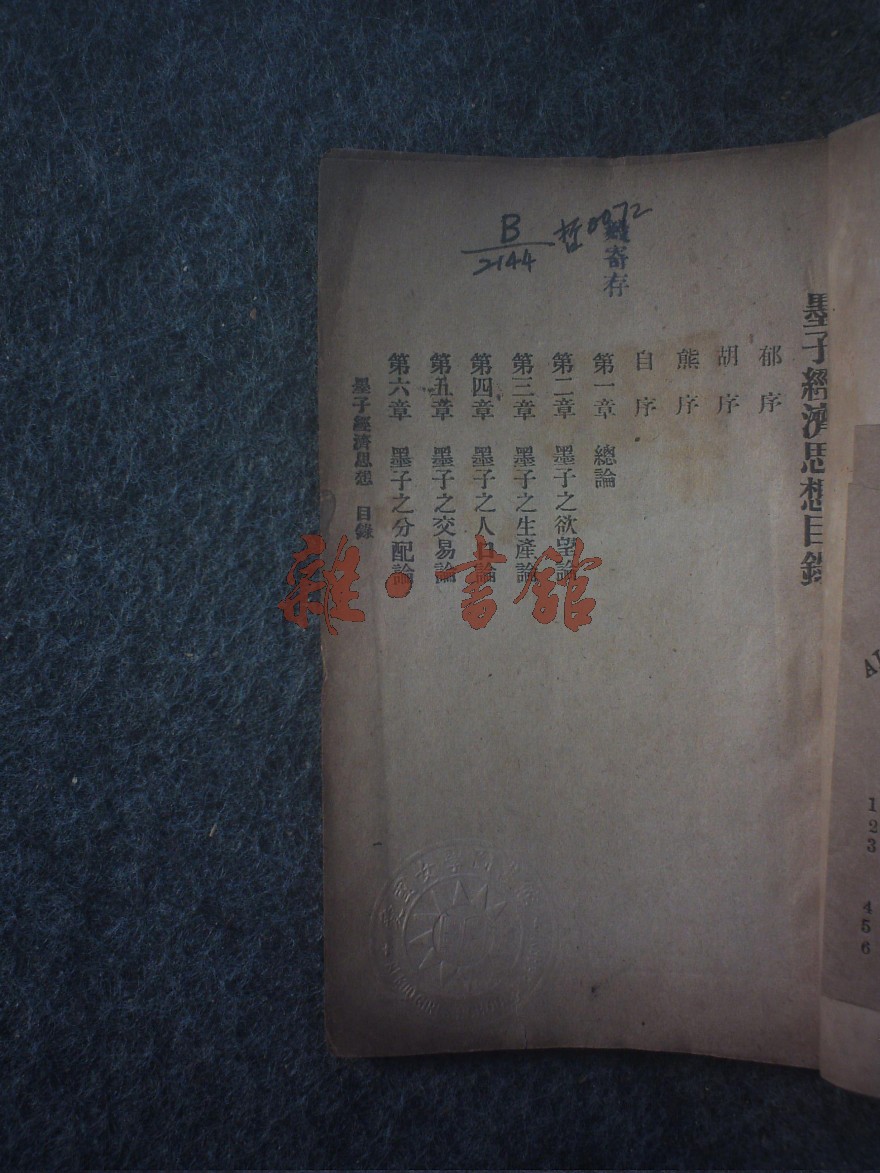 墨子經濟思想目錄
郁序
胡序
熊序
自序
第一章 總論
第二章 墨子之欲望論
第三章 墨子之生產論
第四章 墨子之人口論
第五章 墨子之交易論
第六章 墨子之分配論
墨子經濟思想 目錄
B
2144
哲0072
寄存
雜·書館
1
2
3
4
5
6